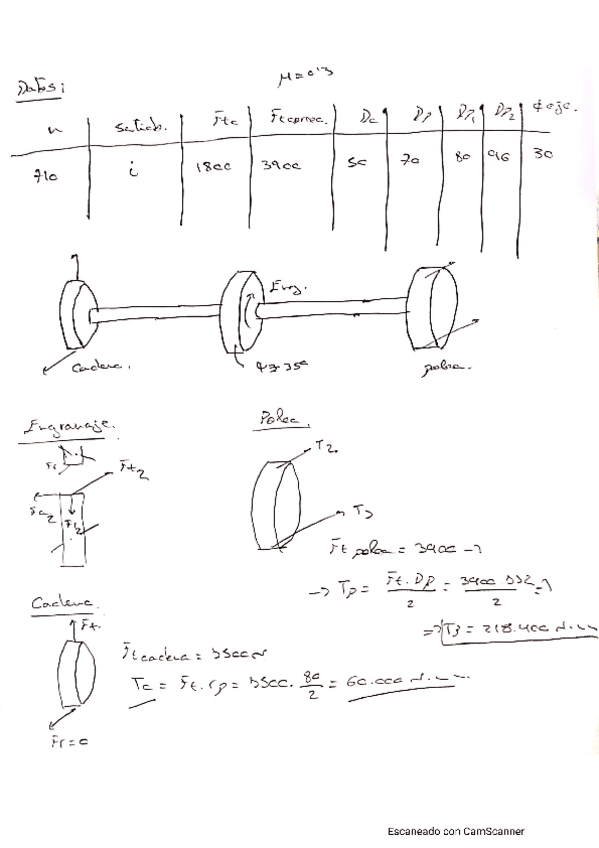 μ=0'3
Datos:
n Ftc Ft correa. Dc Dp Dp1 Dp2 ϕ eje.
710 i 1800 3900 50 70 80 96 30
Eng.
Cadena. polea.
Engranaje. Polea.
T2
Ft2
Fa2 T3
Ft polea = 3900
Tp = Ft·Dp/2 = 3900
T3 = 218.400 N·mm
Cadena.
Ft.
Ft cadena =
Tc = Ft·rp = 80/2 = 60.000 N·mm
Fr=0
Escaneado con CamScanner